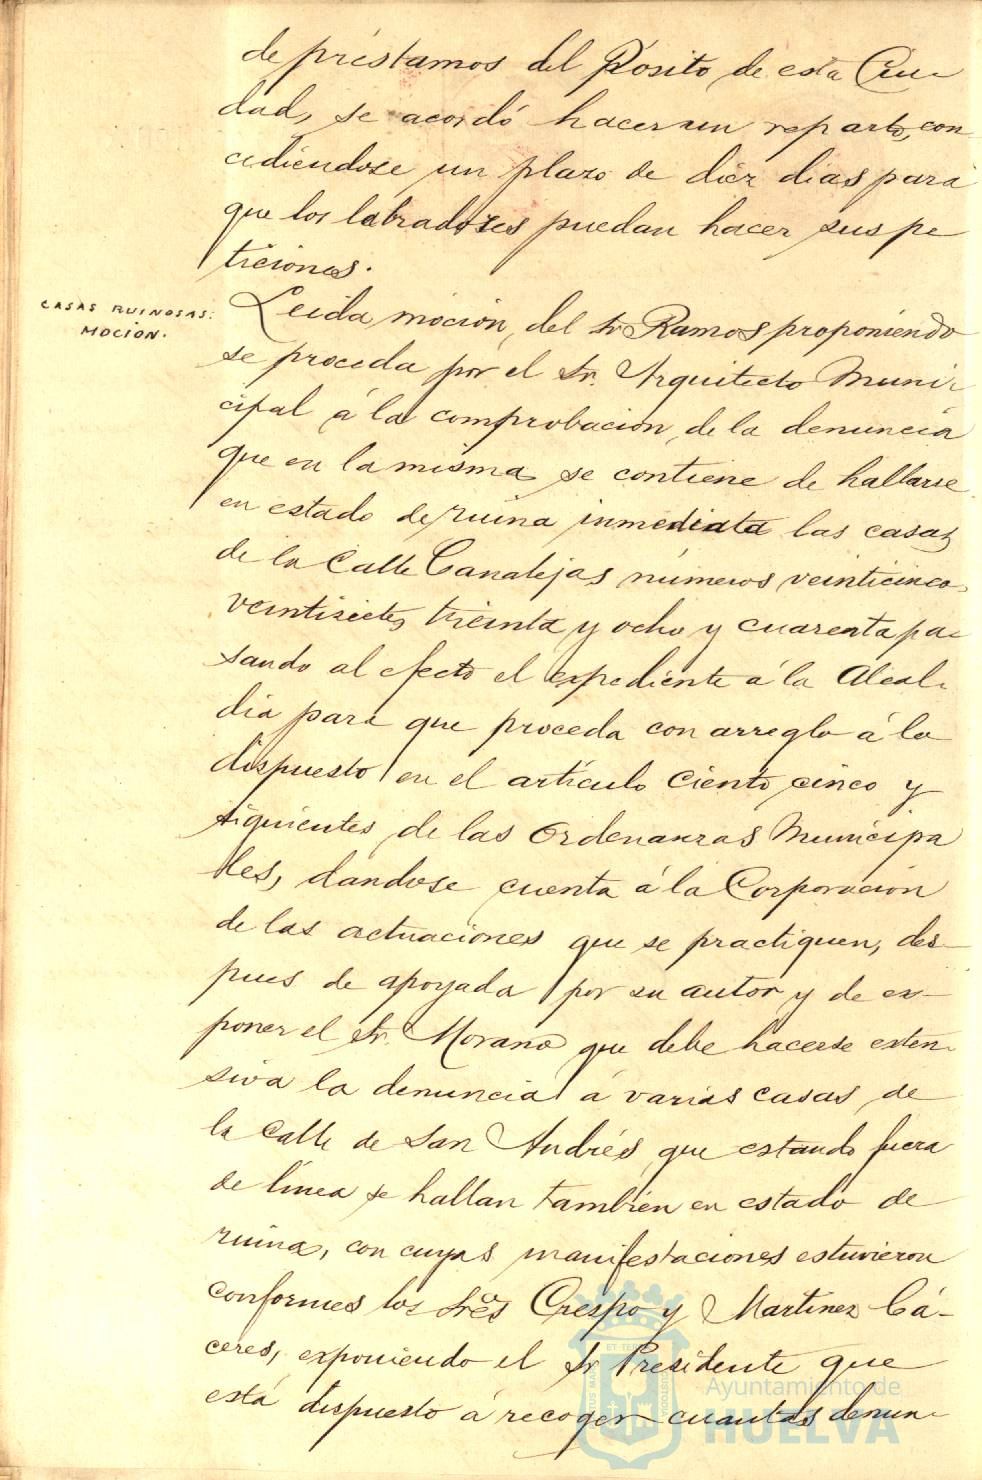 de préstamos del Pósito de esta Ciu-
dad, se acordó hacer un reparto, con
cediéndose un plazo de diez dias para
que los labradores puedan hacer sus pe
ticiones.
CASAS RUINOSAS.
MOCIÓN.
Leida moción, del Sr Ramos proponiendo
se proceda por el Sr. Arquitecto Muni-
cipal á la comprobacion, de la denuncia
que en la misma se contiene de hallarse
en estado de ruina inmediata las casas
de la Calle Canalejas números veinticinco,
veintisiete, treinta y ocho y cuarenta pa-
sando al efecto el expediente á la Alcal-
dia para que proceda con arreglo á lo
dispuesto en el artículo ciento cinco y
siguientes de las Ordenanzas Municipa
les, dandose cuenta á la Corporación
de las actuaciones que se practiquen, des-
pues de apoyada por su autor y de ex-
poner el Sr. Morano que debe hacerse exten-
siva la denuncia á varias casas de
la Calle de San Andrés, que estando fuera
de línea se hallan también en estado de
ruina, con cuyas manifestaciones estuvieron
conformes los Sres Crespo y Martinez Cá-
ceres, exponiendo el Sr Presidente que
está dispuesto á recoger cuantas denun-
Ayuntamiento de
HUELVA